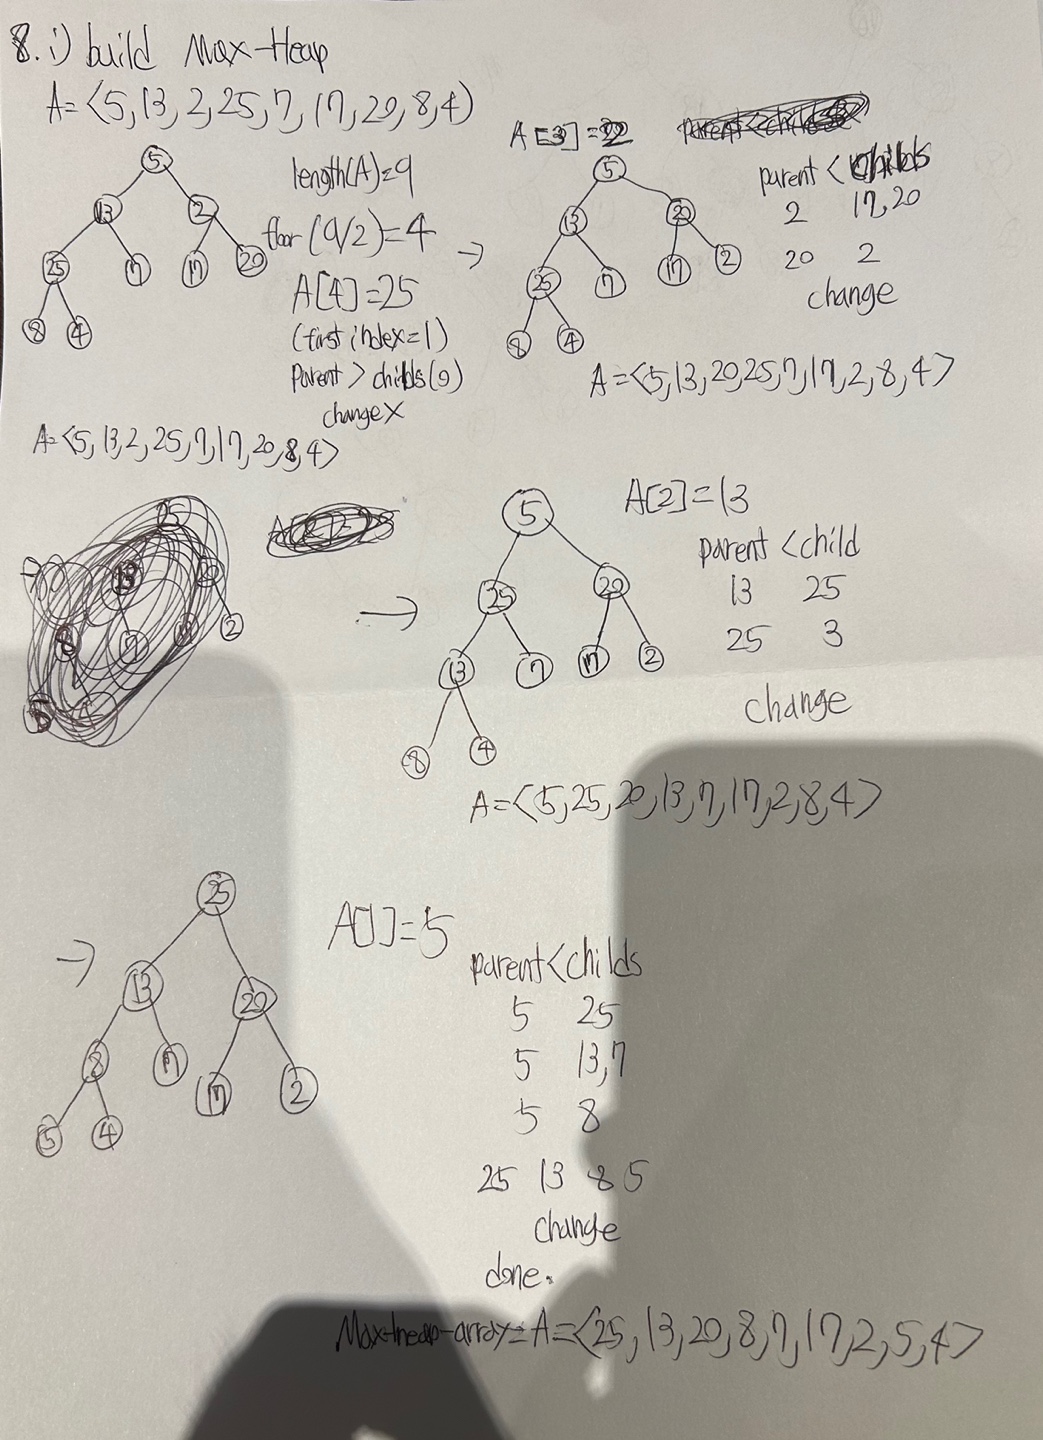 8. i) build Max-Heap
A=<5,13,2,25,7,17,20,8,4>
5
13 2
25 7 17 20
8 4
length(A)=9
floor(9/2)=4
A[4]=25
(first index=1)
parent > childs(o)
change X
A=<5,13,2,25,7,17,20,8,4>
→
A[3]=2
5
13 20
25 7 17 2
8 4
parent < childs
2 17,20
20 2
change
A=<5,13,20,25,7,17,2,8,4>
→
A[2]=13
5
25 20
13 7 17 2
8 4
parent < child
13 25
25 3
change
A=<5,25,20,13,7,17,2,8,4>
→
25
13 20
8 7 17 2
5 4
A[1]=5
parent < childs
5 25
5 13,7
5 8
25 13 8 5
change
done.
Max-heap-array= A=<25,13,20,8,7,17,2,5,4>